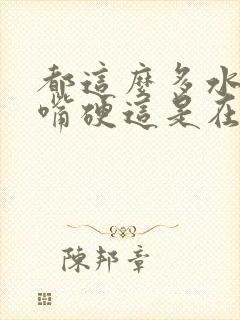 都這麼多水
嘴硬這是在
陳邦章